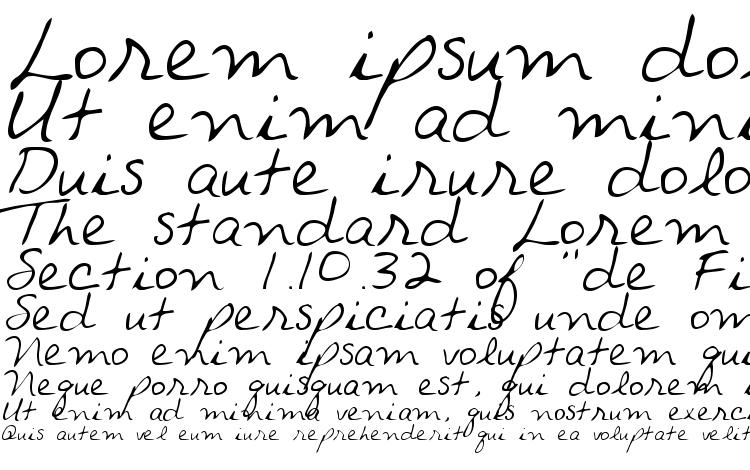 Lorem ipsum do
Ut enim ad mini
Duis aute irure dolo
The standard Lorem
Section 1.10.32 of "de Fi
Sed ut perspiciatis unde om
Nemo enim ipsam voluptatem qui
Neque porro quisquam est, qui dolorem i
Ut enim ad minima veniam, quis nostrum exerci
Quis autem vel eum iure reprehenderit qui in ea voluptate velit